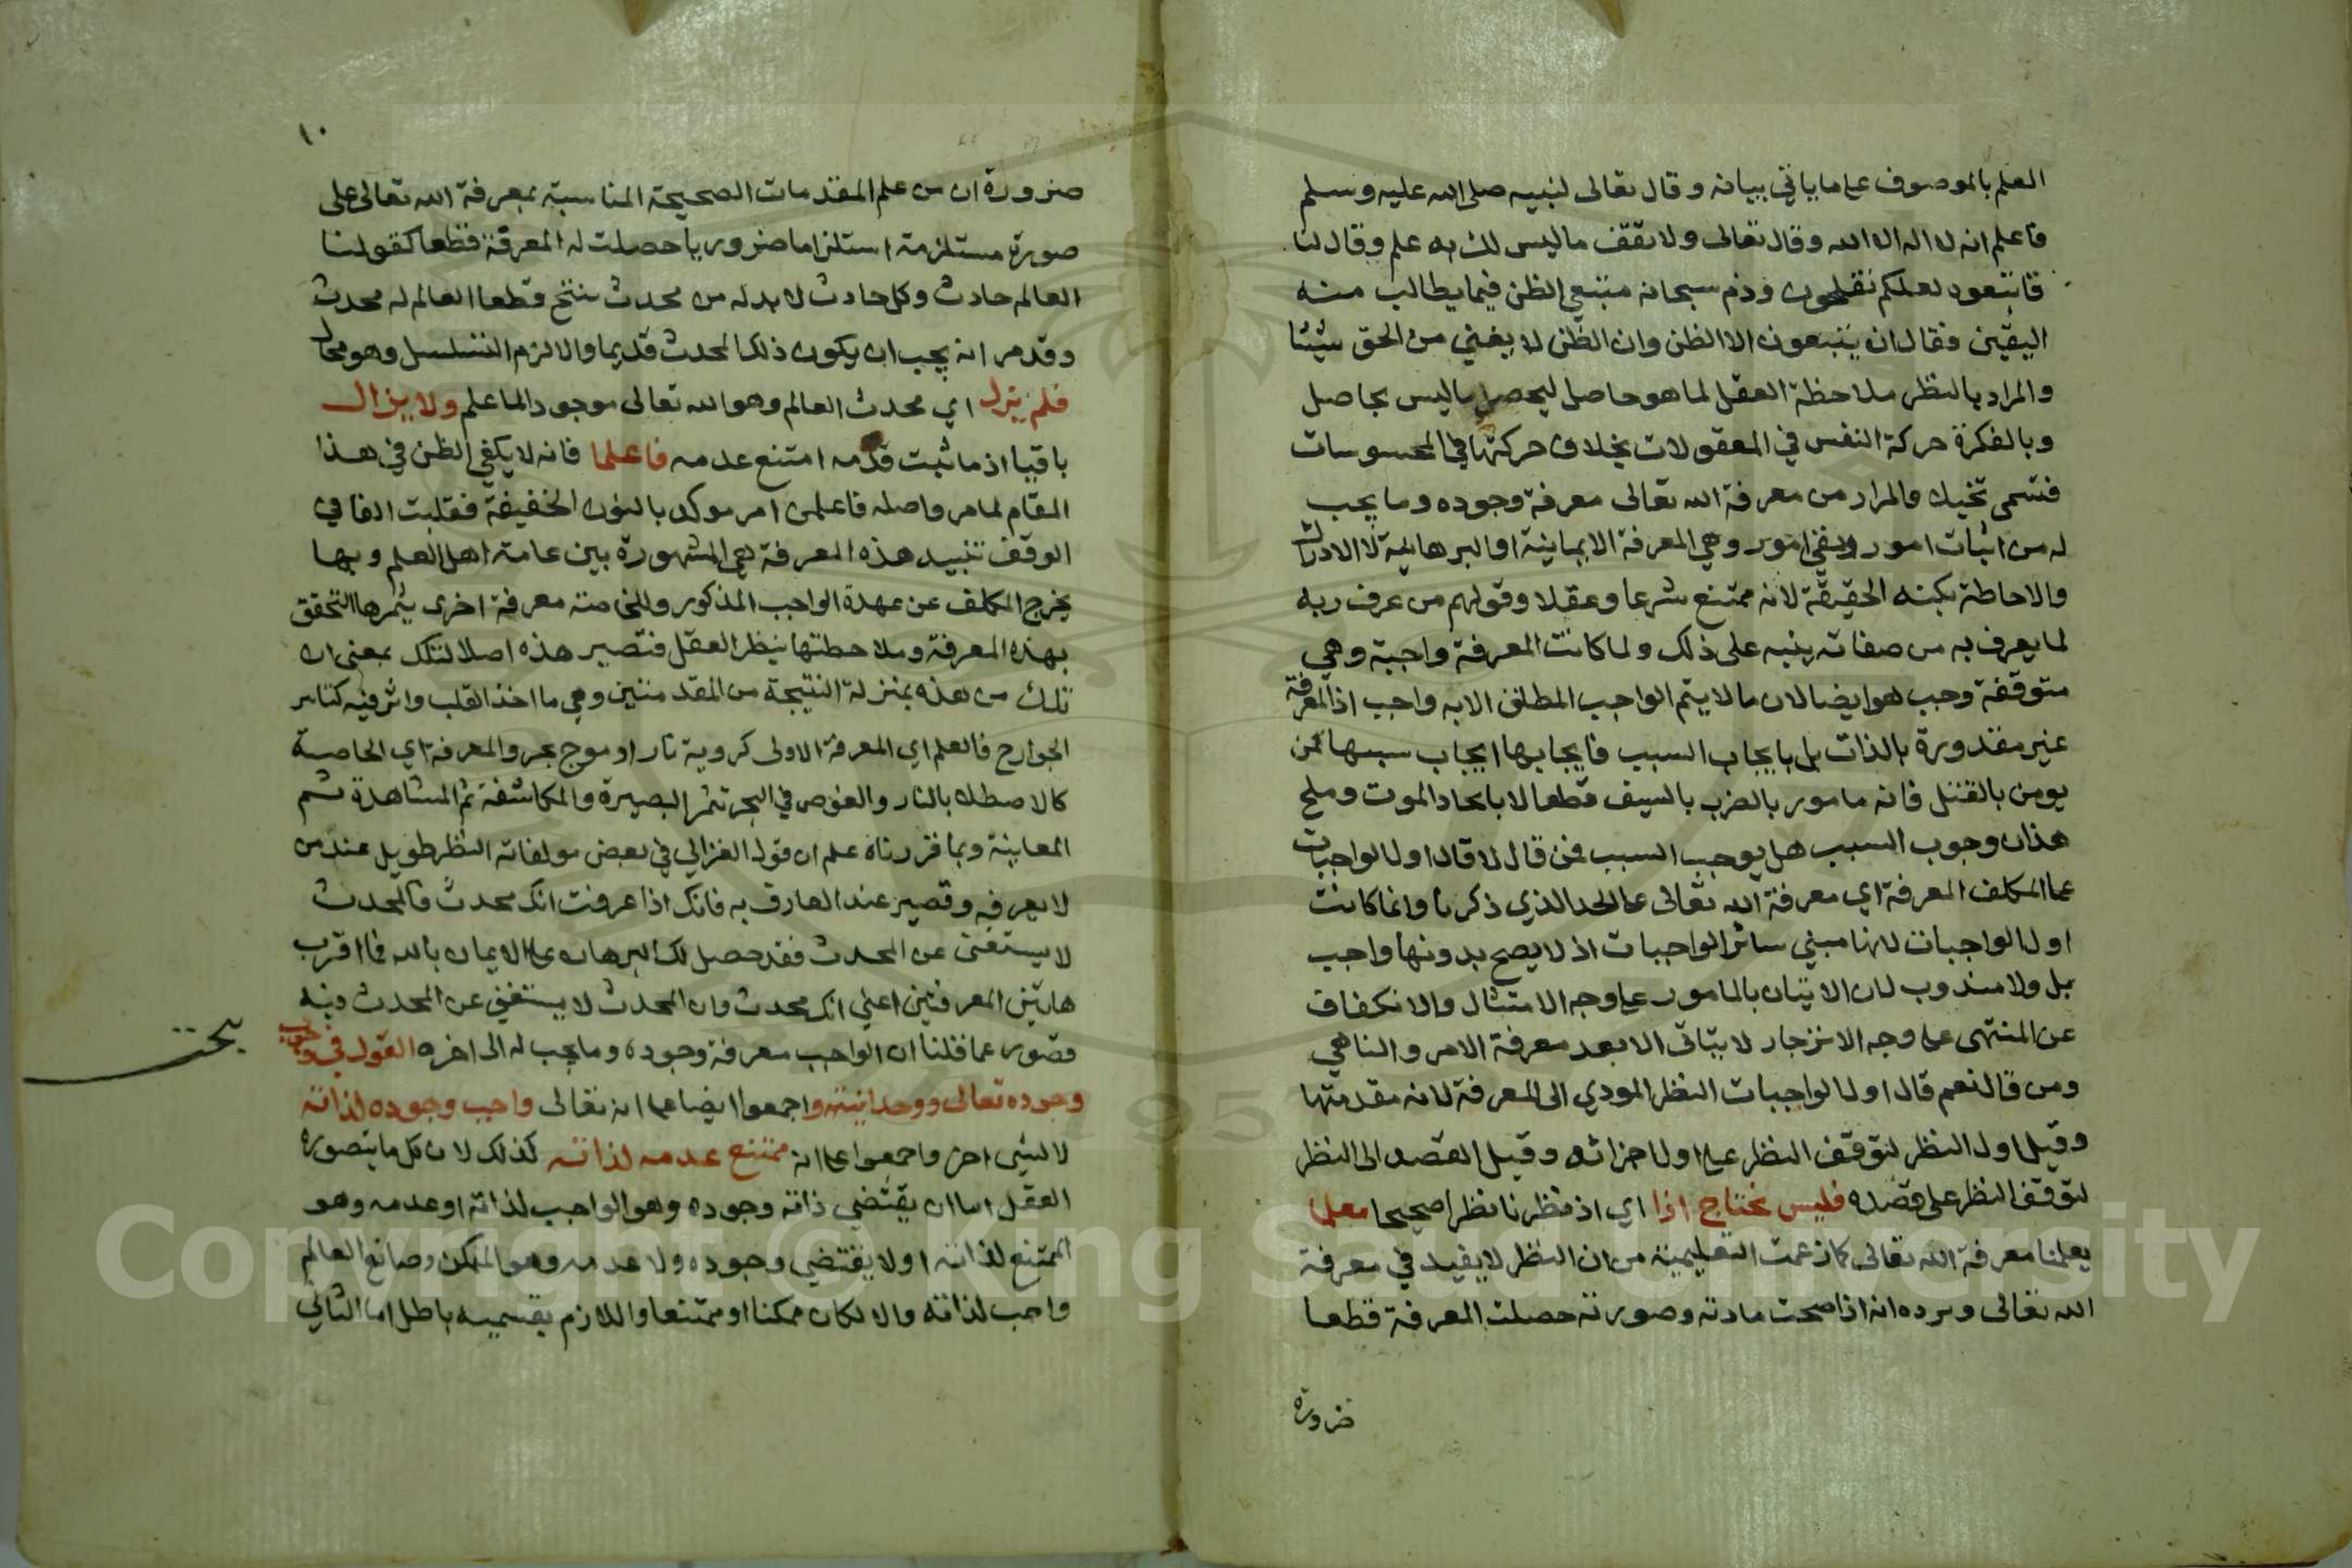 العلم بالموصوف على ما ياتي بيانه وقال تعالى لنبيه صلى الله عليه وسلم
فاعلم انه لا اله الا الله وقال تعالى ولا تقف ما ليس لك به علم وقال لنا
فاتبعوه لعلكم تفلحون وذم سبحانه متبعي الظن فيما يطالب منه
اليقين فقال ان يتبعون الا الظن وان الظن لا يغني من الحق شيئا
والمراد بالنظر ملاحظة العقل لما هو حاصل ليحصل ما ليس بحاصل
وبالفكرة حركة النفس في المعقولات بخلاف حركتها في المحسوسات
فتسمى تخييلا والمراد من معرفة الله تعالى معرفة وجوده وما يجب
له من اثبات امور ونفي امور وهي المعرفة الايمانية او البرهانية لا الادراك
والاحاطة بكنه الحقيقة لانه ممتنع شرعا وعقلا وقولهم من عرف ربه
لما يعرف به من صفاته ينبه على ذلك ولما كانت المعرفة واجبة وهي
متوقفة وجب هو ايضا لان ما لا يتم الواجب المطلق الا به واجب اذ المعرفة
غير مقدورة بالذات بل بايجاب السبب فايجابها ايجاب سببها كمن
يومن بالقتل فانه مامور بالضرب بالسيف قطعا لا بايجاد الموت وملح
هذا ان وجوب السبب هل يوجب السبب فمن قال لا قال اول الواجبات
على المكلف المعرفة اي معرفة الله تعالى على الحد الذي ذكرنا وانما كانت
اول الواجبات لانها مبني سائر الواجبات اذ لا يصح بدونها واجب
بل ولا مندوب لان الاتيان بالمامور على وجه الامتثال والانكفاف
عن المنتهى على وجه الانزجار لا يتاتى الا بعد معرفة الامر والناهي
ومن قال نعم قال اول الواجبات النظر المودي الى المعرفة لانه مقدمتها
وقيل اول النظر لتوقف النظر على اول اجزائه وقيل القصد الى النظر
لتوقف النظر على قصده فليس نحتاج اذا اي اذ نظرنا نظرا صحيحا معلما
يعلمنا معرفة الله تعالى كما زعمت التعليمية من ان النظر لا يفيد في معرفة
الله تعالى ويرده انه اذا صحت مادته وصورته حصلت المعرفة قطعا
ضرورة
١٠
ضرورة ان من علم المقدمات الصحيحة المناسبة بمعرفة الله تعالى على
صورة مستلزمة استلزاما ضروريا حصلت له المعرفة قطعا كقولنا
العالم حادث وكل حادث لا بد له من محدث ينتج قطعا العالم له محدث
وقد مر انه يجب ان يكون ذلك المحدث قديما والا لزم التسلسل وهو محال
فلم يزل اي محدث العالم وهو الله تعالى موجودا لما علم ولا يزال
باقيا اذ ما ثبت قدمه امتنع عدمه فاعلما فانه لا يكفي الظن في هذا
المقام لما مر واصله فاعلمن امر موكد بالنون الخفيفة فقلبت الفا في
الوقف تنبيه هذه المعرفة هي المشهورة بين عامة اهل العلم وبها
يخرج المكلف عن عهدة الواجب المذكور وللخاصة معرفة اخرى يثمرها التحقق
بهذه المعرفة وملاحظتها بنظر العقل فتصير هذه اصلا لتلك بمعنى ان
تلك من هذه بمنزلة النتيجة من المقدمتين وهي ما اخذ القلب واثر فيه كتاثير
الجوارح فالعلم اي المعرفة الاولى كروية نار او موج بحر والمعرفة اي الخاصة
كالاصطلا بالنار والغوص في البحر تثمر البصيرة والمكاشفة ثم المشاهدة ثم
المعاينة وبما قررناه علم ان قول الغزالي في بعض مولفاته النظر طويل عند من
لا يعرفه وقصير عند العارف به فانك اذا عرفت انك محدث والمحدث
لا يستغني عن المحدث فقد حصل لك البرهان على الايمان بالله فما اقرب
هاتين المعرفتين اعني انك محدث وان المحدث لا يستغني عن المحدث وفيه
قصور عما قلنا ان الواجب معرفة وجوده وما يجب له الى اخره القول في وجوب
وجوده تعالى ووحدانيته واجمعوا ايضا على انه تعالى واجب وجوده لذاته
لا لشي اخر واجمعوا على انه ممتنع عدمه لذاته كذلك لان كل ما يتصوره
العقل اما ان يقتضي ذاته وجوده وهو الواجب لذاته او عدمه وهو
الممتنع لذاته او لا يقتضي وجوده ولا عدمه وهو الممكن وصانع العالم
واجب لذاته والا لكان ممكنا او ممتنعا واللازم بقسميه باطل اما الثاني
Copyright © King Saud University